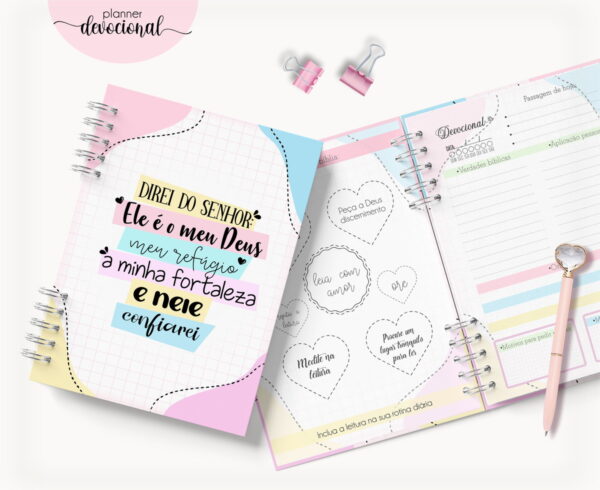 planner
devocional
DIREI DO SENHOR:
Ele é o meu Deus
meu refúgio
a minha fortaleza
e nele
confiarei
Bíblia
Peça a Deus
discernimento
leia com
amor
ore
leitura
Medite na
leitura
Procure um
lugar tranquilo
para ler
Inclua a leitura na sua rotina diária
Devocional
DIA
Passagem de hoje
Verdades bíblicas
Aplicação pessoal
Motivos para pedir